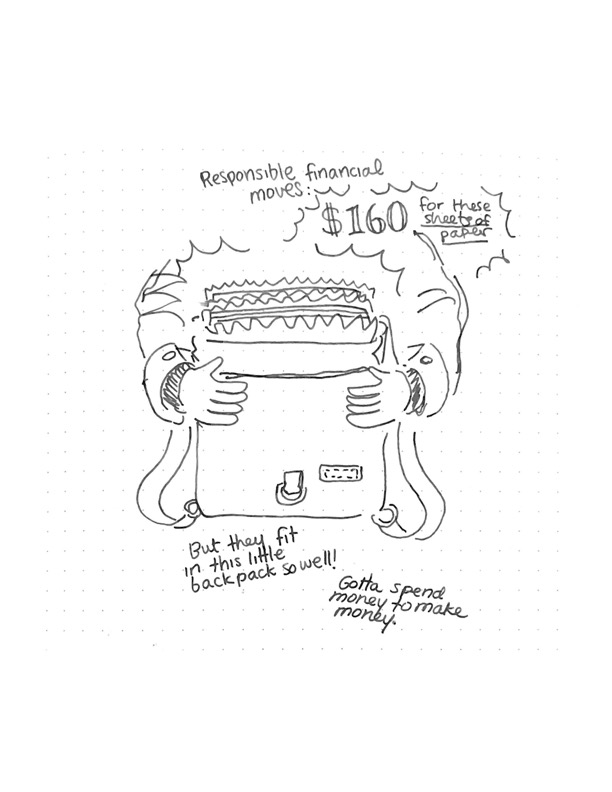 Responsible financial
moves:
$160
for these
sheets of
paper
But they fit
in this little
backpack so well!
Gotta spend
money to make
money.